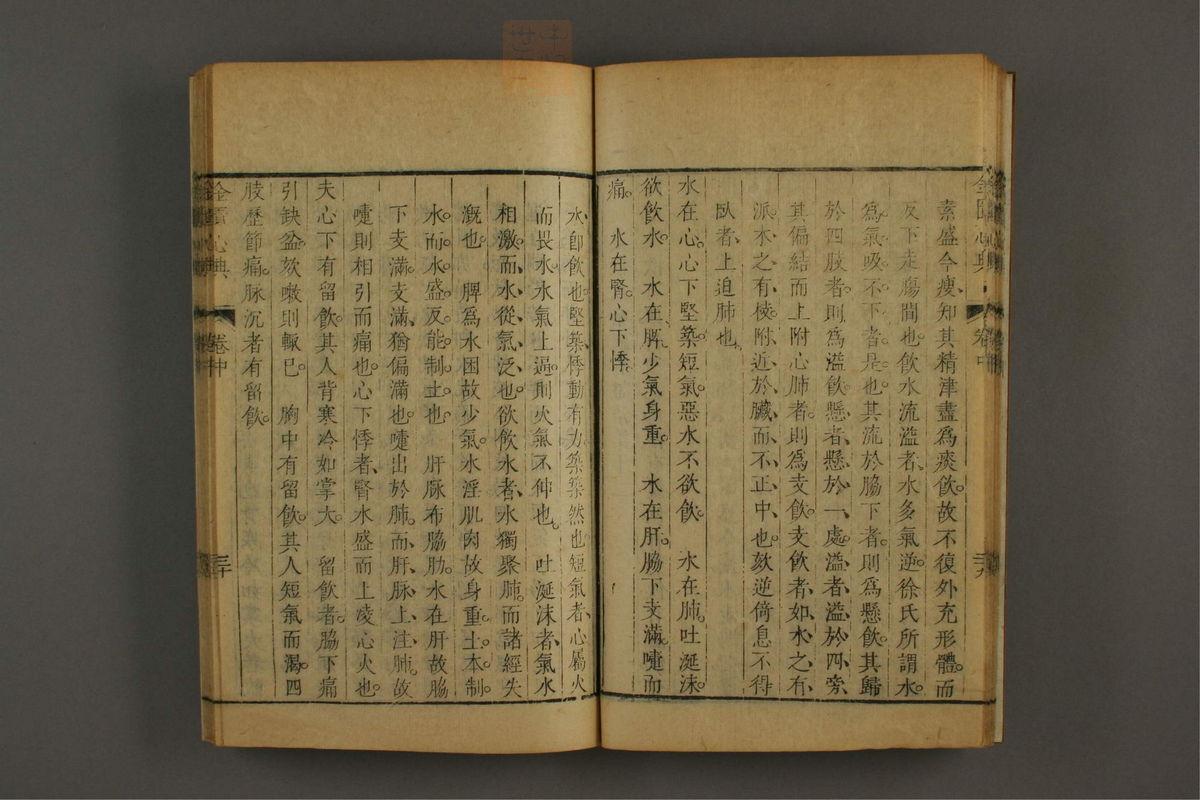 金匱心典
卷中
素盛今瘦知其精津盡爲痰飲。故不復外充形體。而
反下走腸間也。飲水流溢者、水多氣逆。徐氏所謂水
爲氣吸不下者是也。其流於脇下者。則爲懸飲。其歸
於四肢者。則爲溢飲。懸者、懸於一處。溢者、溢於四旁、
其偏結而上附心肺者。則爲支飲。支飲者、如水之有
派、木之有枝。附近於臟、而不正中也。欬逆倚息不得
臥者、上迫肺也。
水在心。心下堅築。短氣。惡水不欲飲。 水在肺。吐涎沫。
欲飲水。 水在脾。少氣身重。 水在肝。脇下支滿。嚏而
痛。 水在腎。心下悸。
水、卽飲也。堅築、悸動有力。築築然也。短氣者、心屬火
而畏水。水氣上逼。則火氣不伸也。 吐涎沫者、氣水
相激。而水從氣泛也。欲飲水者、水獨聚肺。而諸經失
溉也。 脾爲水困。故少氣。水淫肌肉。故身重。土本制
水。而水盛反能制土也。 肝脉布脇肋。水在肝。故脇
下支滿。支滿、猶偏滿也。嚏出於肺。而肝脉上注肺。故
嚏則相引而痛也。心下悸者、腎水盛而上凌心火也。
夫心下有留飲。其人背寒冷如掌大。 留飲者。脇下痛
引缺盆。欬嗽則輒已。 胸中有留飲。其人短氣而渴。四
肢歷節痛。脉沉者有留飲。
金匱心典
卷中
三十